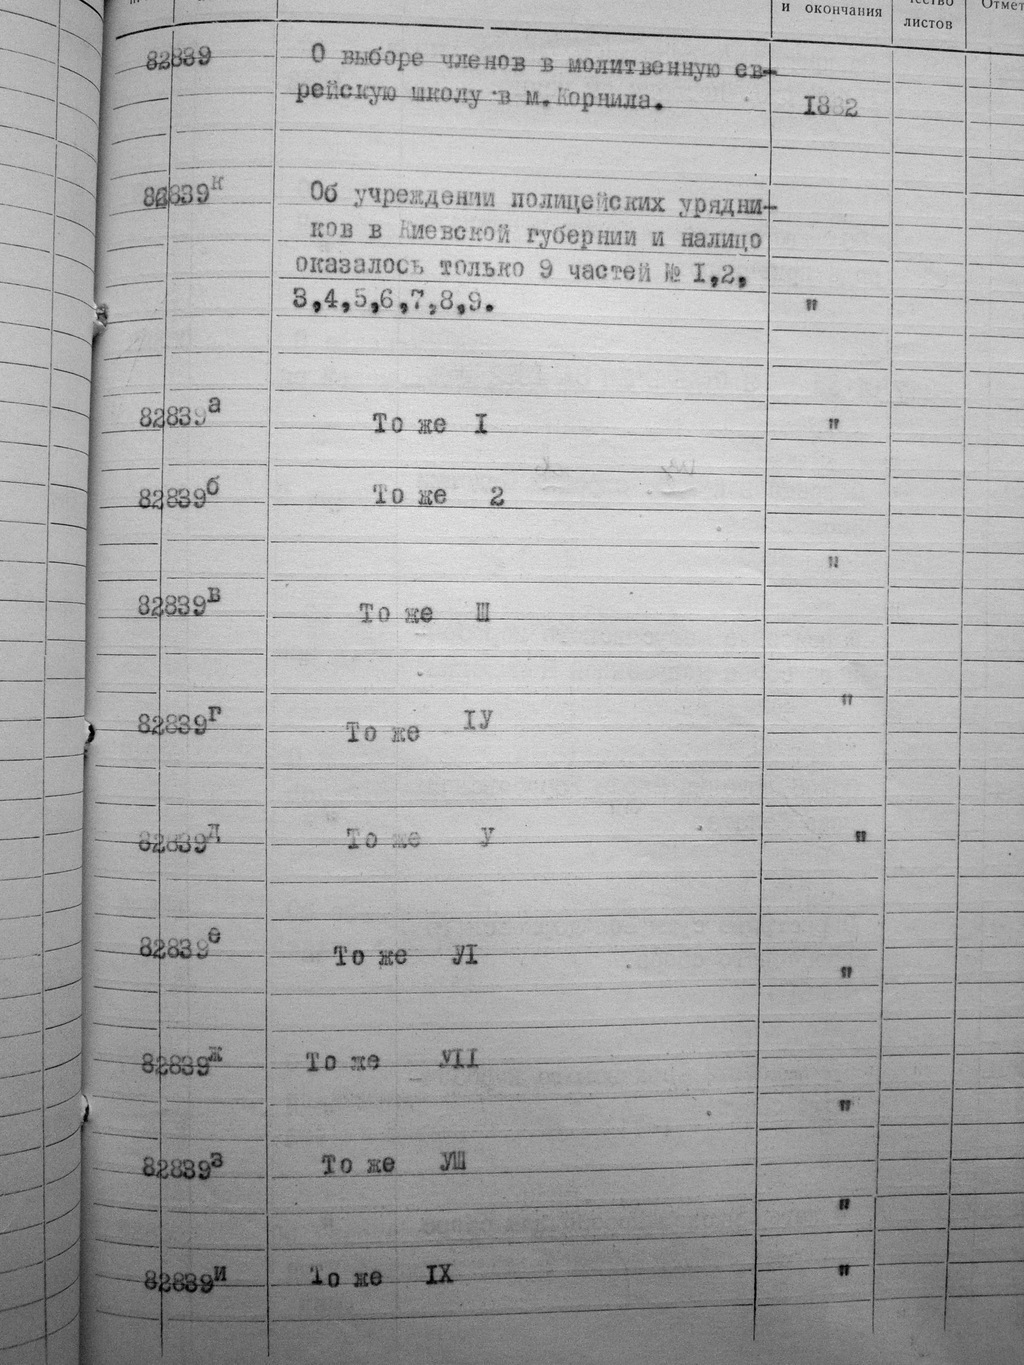 и окончания
листов
82839 О выборе членов в молитвенную ев-
рейскую школу в м. Корнила. 1882
82839к Об учреждении полицейских урядни-
ков в Киевской губернии и налицо
оказалось только 9 частей № I,2,
3,4,5,6,7,8,9. "
82839а То же I "
82839б То же 2
"
82839в То же Ш
"
82839г То же IУ
82839д То же У "
82839е То же УI
"
82839ж То же УII
"
82839з То же УШ
"
82839и То же IX "